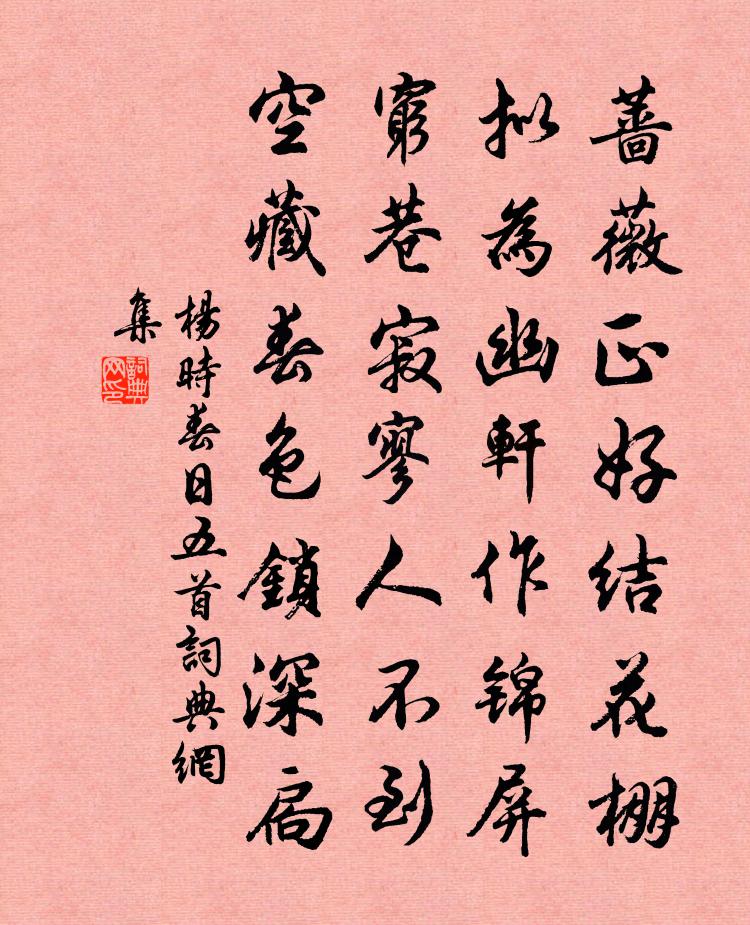 薔薇正好結花棚
擬為幽軒作錦屏
窮巷寂寥人不到
空藏春色鎖深扃
楊時春日五首詞典網
集
詞典
网印